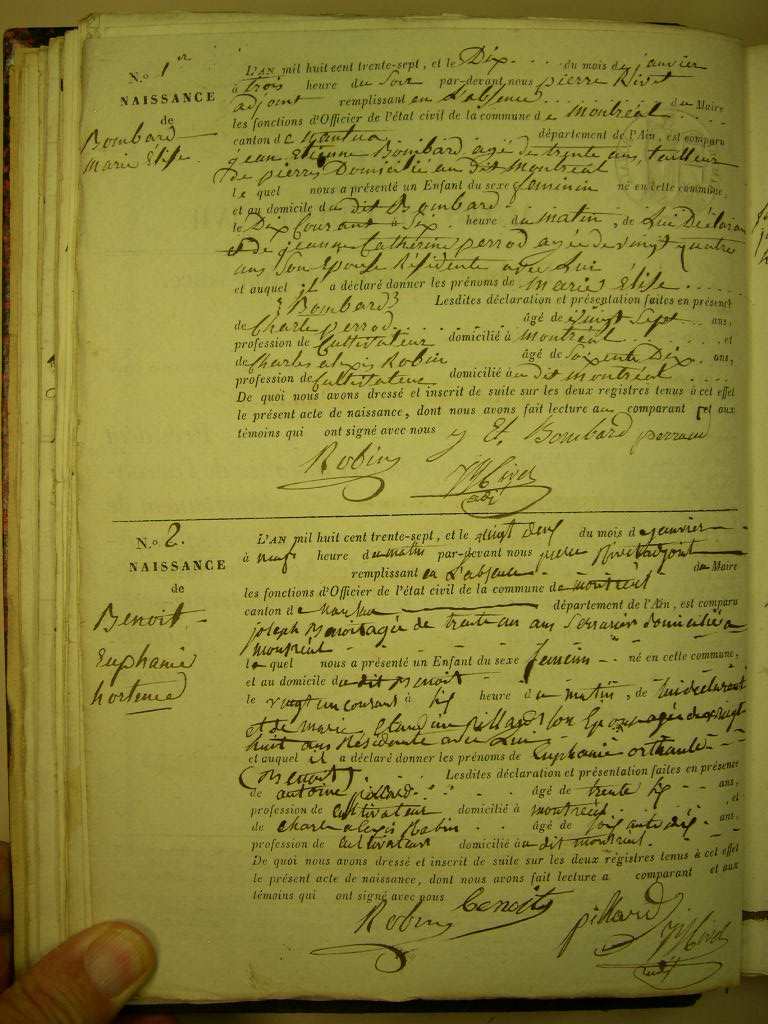 N.o 1er
NAISSANCE
de
Bombard
Marie Elise.
L'AN mil huit cent trente-sept, et le Dix du mois de janvier
à trois heure du Soir par-devant nous pierre Rivet
adjoint remplissant en L'absence du Maire
les fonctions d'Officier de l'état civil de la commune de Montréal
canton de Nantua département de l'Ain, est comparu
jean Etienne Bombard agé de trente ans, tailleur
de pierres Domicilié au dit Montreal
le quel nous a présenté un Enfant du sexe feminin né en cette commune,
et au domicile du dit Bombard
le Dix Courant à Six heure du matin, de Lui Déclarant
et de jeanne Catherine perrod agée de vingt quatre
ans Son Epouse Résidente avec Lui
et auquel il a déclaré donner les prénoms de Marie Elise
(Bombard) Lesdites déclaration et présentation faites en présence
de Charle perrod âgé de vingt Sept ans,
profession de Cultivateur domicilié à Montréal et
de Charles alexis Robin âgé de Soixente Dix ans,
profession de Cultivateur domicilié au dit Montréal
De quoi nous avons dressé et inscrit de suite sur les deux registres tenus à cet effet
le présent acte de naissance, dont nous avons fait lecture au comparant et aux
témoins qui ont signé avec nous Et. Bombard
Robin
N.o 2.
NAISSANCE
de
Benoit
Euphanie
hortence
L'AN mil huit cent trente-sept, et le vingt deux du mois de janvier
à neuf heure du matin par-devant nous pierre Rivet adjoint
remplissant en L'absence du Maire
les fonctions d'Officier de l'état civil de la commune de montréal
canton de Nantua département de l'Ain, est comparu
joseph Benoit agée de trente ans Serrurier domicilié a
montréal
le quel nous a présenté un Enfant du sexe feminin né en cette commune,
et au domicile du dit Benoit
le vingt un courant à six heure du matin, de lui declarant
et de marie pillard son Epouse agée de vingt
huit ans Résidente avec Lui
et auquel il a déclaré donner les prénoms de Euphanie
(Benoit) Lesdites déclaration et présentation faites en présence
de antoine pillard âgé de trente six ans,
profession de cultivateur domicilié à montréal et
de charle alexis Robin âgé de soixante dix ans,
profession de cultivateur domicilié au dit montréal
De quoi nous avons dressé et inscrit de suite sur les deux registres tenus à cet effet
le présent acte de naissance, dont nous avons fait lecture a comparant et aux
témoins qui ont signé avec nous
Robin Benoit pillard